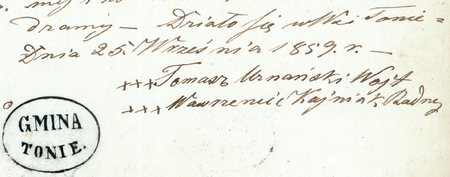 dramy — Działo się w Wsi Tonie =
Dnia 25 Września 1859. r. —
+++ Tomasz Urnański Wojt
+++ Wawrzeniec Kaźniak, Radny
GMINA
TONIE.